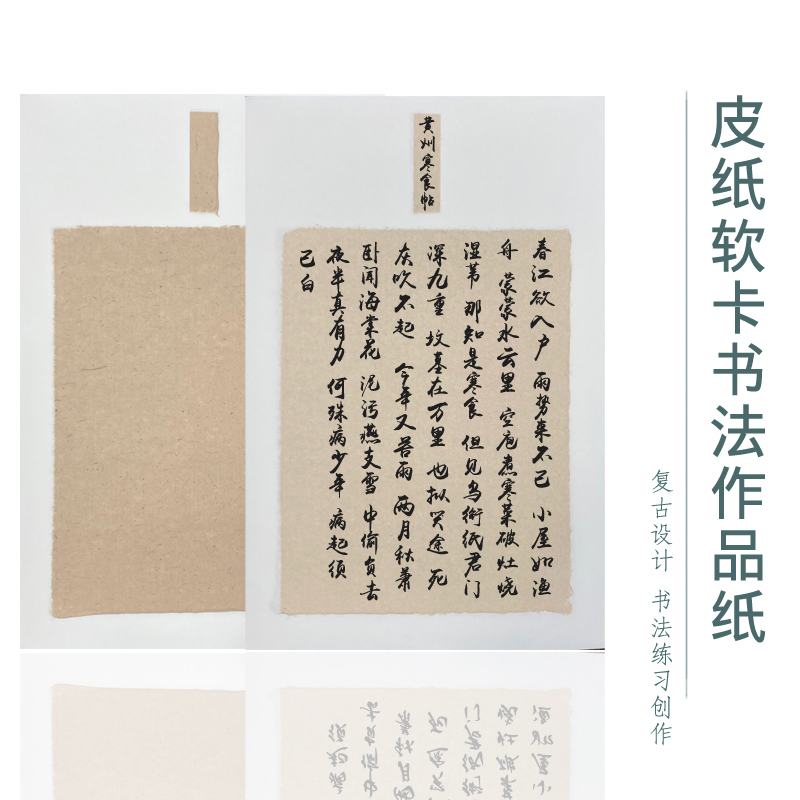 皮纸软卡书法作品纸
复古设计 书法练习创作
黄州寒食帖
春江欲入户 雨势来不已 小屋如渔
舟 蒙蒙水云里 空庖煮寒菜破灶烧
湿苇 那知是寒食 但见乌衔纸君门
深九重 坟墓在万里 也拟哭途 死
灰吹不起 今年又苦雨 两月秋萧
卧闻海棠花 泥污燕支雪 中偷负去
夜半真有力 何殊病少年 病起须
已白